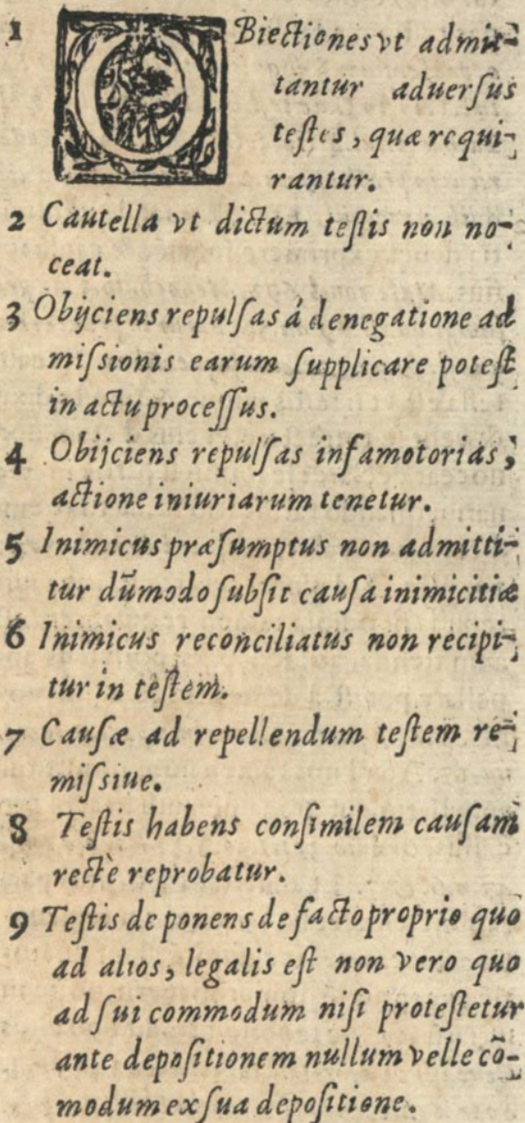 1 OBiectiones vt admit-
tantur aduerſus
teſtes, quæ requi-
rantur.
2 Cautella vt dictum teſtis non no-
ceat.
3 Obijciens repulſas á denegatione ad
miſsionis earum ſupplicare poteſt
in actu proceſſus.
4 Obijciens repulſas infamotorias,
actione iniuriarum tenetur.
5 Inimicus præſumptus non admitti-
tur dūmodo ſubſit cauſa inimicitiæ
6 Inimicus reconciliatus non recipi-
tur in teſtem.
7 Cauſæ ad repellendum teſtem re-
miſsiue.
8 Teſtis habens conſimilem cauſam
rectè reprobatur.
9 Teſtis deponens de facto proprio quo
ad alios, legalis eſt non vero quo
ad ſui commodum niſi proteſtetur
ante depoſitionem nullum velle cō-
modum ex ſua depoſitione.